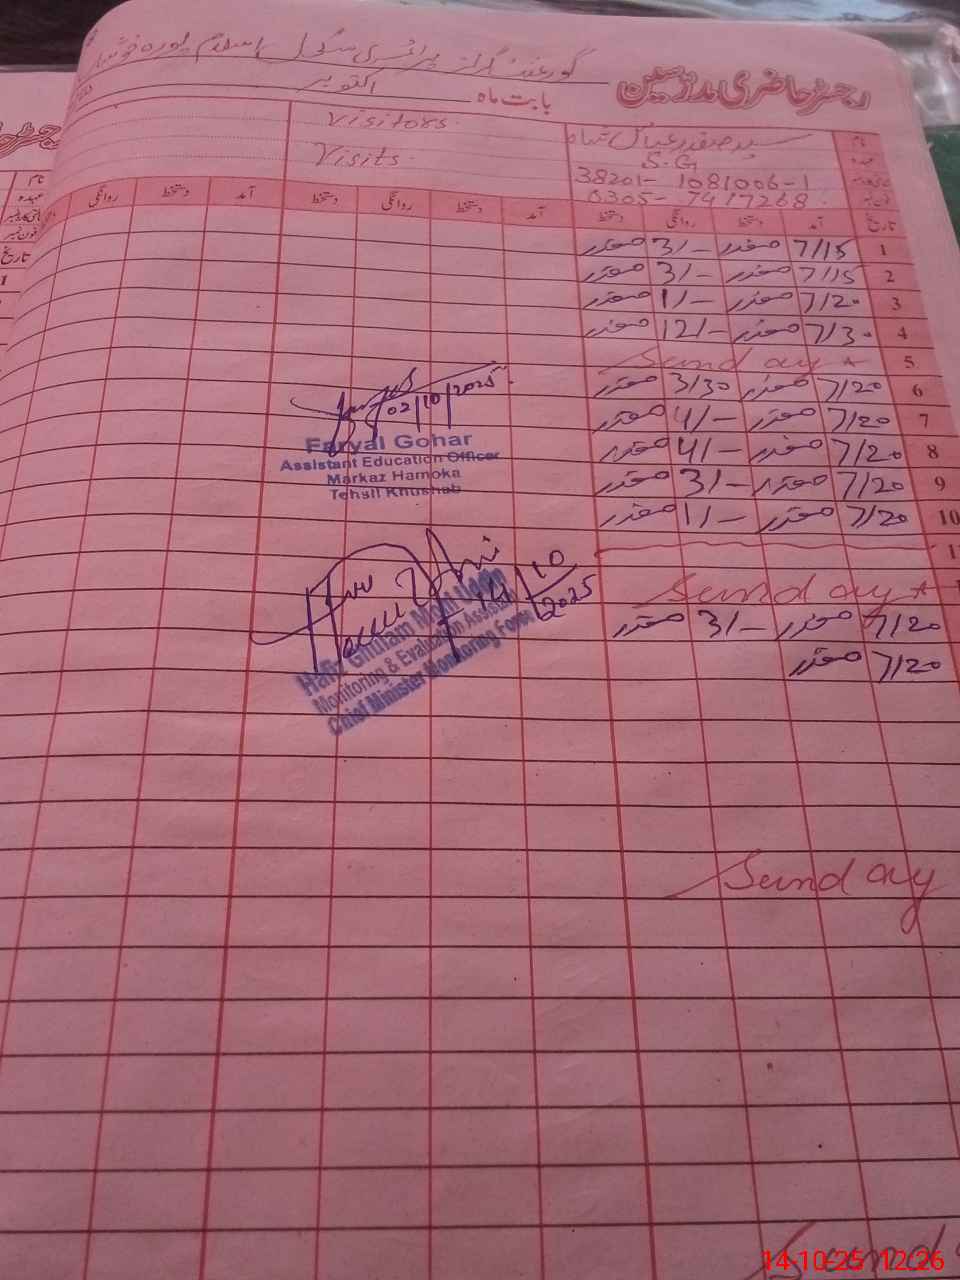 گورنمنٹ گرلز پرائمری سکول اسلام پورہ
رجسٹر حاضری مدرسین
بابت ماہ اکتوبر
نام سید صفدر عباس شاہ
عہدہ S.G
38201-1081006-1
0305-7417268
Visitors
Visits
تاریخ آمد دستخط روانگی دستخط آمد دستخط روانگی دستخط آمد دستخط روانگی
1 7/15 صفدر 3/- صفدر
2 7/15 صفدر 3/- صفدر
3 7/20 صفدر 1/- صفدر
4 7/30 صفدر 12/- صفدر
5 Sunday
6 7/20 صفدر 3/30 صفدر
7 7/20 صفدر 4/- صفدر
8 7/20 صفدر 4/- صفدر
9 7/20 صفدر 3/- صفدر
10 7/20 صفدر 1/- صفدر
Sunday
7/20 صفدر 3/- صفدر
7/20 صفدر
Sunday
02/10/2025
Faryal Gohar
Assistant Education Officer
Markaz Hamoka
Tehsil Khushab
14/10/2025
Hafiz Ghulam Mohi Uddin
Monitoring & Evaluation Assistant
Chief Minister Monitoring Force
14-10-25 12:26